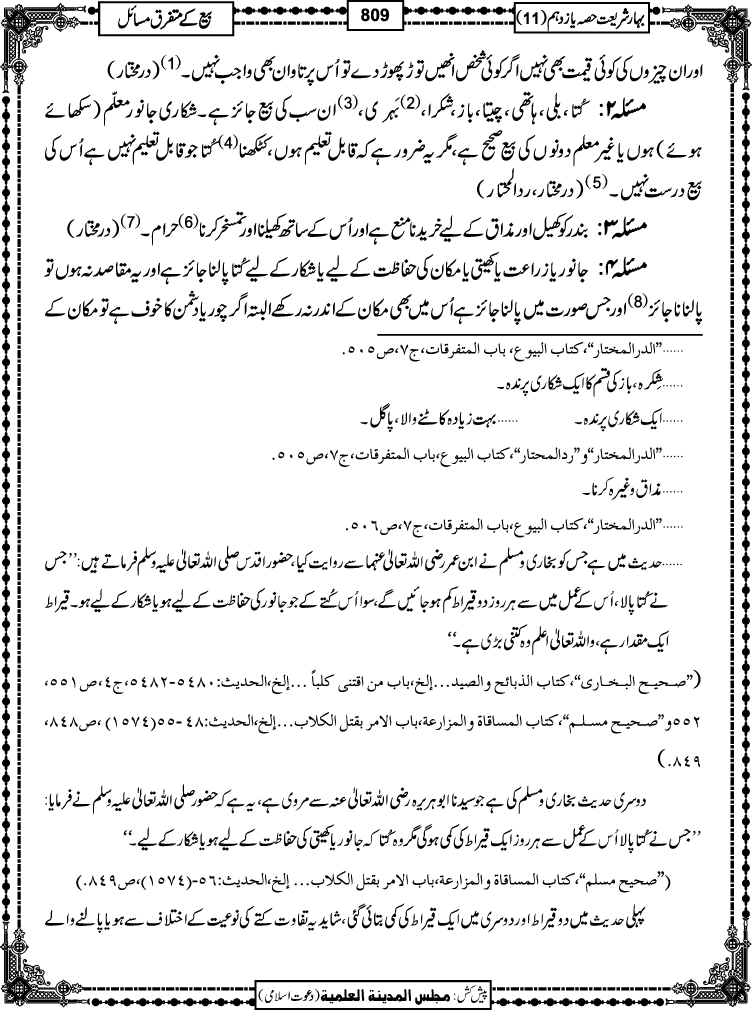 بہار شریعت حصہ یازدہم (11)
809
بیع کے متفرق مسائل
اور ان چیزوں کی کوئی قیمت بھی نہیں اگر کوئی شخص انھیں توڑ پھوڑ دے تو اُس پر تاوان بھی واجب نہیں۔(1) (درمختار)
مسئلہ ۲: کُتا، بلی، ہاتھی، چیتا، باز، شکرا،(2) بَہری،(3) ان سب کی بیع جائز ہے۔ شکاری جانور معلّم (سکھائے
ہوئے) ہوں یا غیر معلم دونوں کی بیع صحیح ہے، مگر یہ ضرور ہے کہ قابل تعلیم ہوں، کٹکھنا(4) کُتا جو قابل تعلیم نہیں ہے اُس کی
بیع درست نہیں۔(5) (درمختار، ردالمحتار)
مسئلہ ۳: بندر کو کھیل اور مذاق کے لیے خریدنا منع ہے اور اُس کے ساتھ کھیلنا اور تمسخر کرنا(6) حرام۔(7) (درمختار)
مسئلہ ۴: جانور یا زراعت یا کھیتی یا مکان کی حفاظت کے لیے یا شکار کے لیے کُتا پالنا جائز ہے اور یہ مقاصد نہ ہوں تو
پالنا ناجائز(8) اور جس صورت میں پالنا جائز ہے اُس میں بھی مکان کے اندر نہ رکھے البتہ اگر چور یا دشمن کا خوف ہے تو مکان کے
......”الدرالمختار“، کتاب البیوع، باب المتفرقات، ج٧، ص٥٠٥.
......شِکرہ، باز کی قسم کا ایک شکاری پرندہ۔
......ایک شکاری پرندہ۔ ......بہت زیادہ کاٹنے والا، پاگل۔
......”الدرالمختار“ و ”ردالمحتار“، کتاب البیوع، باب المتفرقات، ج٧، ص٥٠٥.
......مذاق وغیرہ کرنا۔
......”الدرالمختار“، کتاب البیوع، باب المتفرقات، ج٧، ص٥٠٦.
......حدیث میں ہے جس کو بخاری ومسلم نے ابن عمر رضی اللہ تعالٰی عنہما سے روایت کیا، حضور اقدس صلی اللہ تعالٰی علیہ وسلم فرماتے ہیں: ’’جس
نے کُتا پالا، اُس کے عمل میں سے ہر روز دو قیراط کم ہوجائیں گے، سوا اُس کُتے کے جو جانور کی حفاظت کے لیے ہو یا شکار کے لیے ہو۔ قیراط
ایک مقدار ہے، واللہ تعالٰی اعلم وہ کتنی بڑی ہے۔‘‘
(”صحیح البخاری“، کتاب الذبائح والصید...إلخ، باب من اقتنی کلباً ...إلخ، الحدیث: ٥٤٨٠-٥٤٨٢، ج٤، ص٥٥١،
٥٥٢ و ”صحیح مسلم“، کتاب المساقاة والمزارعة، باب الامر بقتل الکلاب...إلخ، الحدیث: ٤٨-٥٥(١٥٧٤)، ص٨٤٨،
٨٤٩.)
دوسری حدیث بخاری ومسلم کی ہے جو سیدنا ابوہریرہ رضی اللہ تعالٰی عنہ سے مروی ہے، یہ ہے کہ حضور صلی اللہ تعالٰی علیہ وسلم نے فرمایا:
’’جس نے کُتا پالا اُس کے عمل سے ہر روز ایک قیراط کی کمی ہوگی مگر وہ کُتا کہ جانور یا کھیتی کی حفاظت کے لیے ہو یا شکار کے لیے۔‘‘
(”صحیح مسلم“، کتاب المساقاة والمزارعة، باب الامر بقتل الکلاب... إلخ، الحدیث: ٥٦-(١٥٧٤)، ص٨٤٩.)
پہلی حدیث میں دو قیراط اور دوسری میں ایک قیراط کی کمی بتائی گئی، شاید یہ تفاوت کتے کی نوعیت کے اختلاف سے ہو یا پالنے والے
پیش کش: مجلس المدینة العلمیة (دعوت اسلامی)